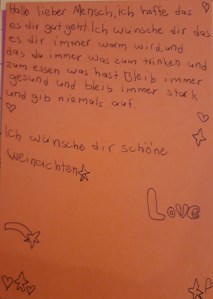 Hale lieber Mensch, ich hoffe das
es dir gut geht. Ich wünsche dir das
es dir immer warm wird, und
das du immer was zum trinken und
zum essen was hast Bleib immer
gesund und bleib immer stark
und gib niemals auf.
Ich wünsche dir schöne
Weinachten
Love